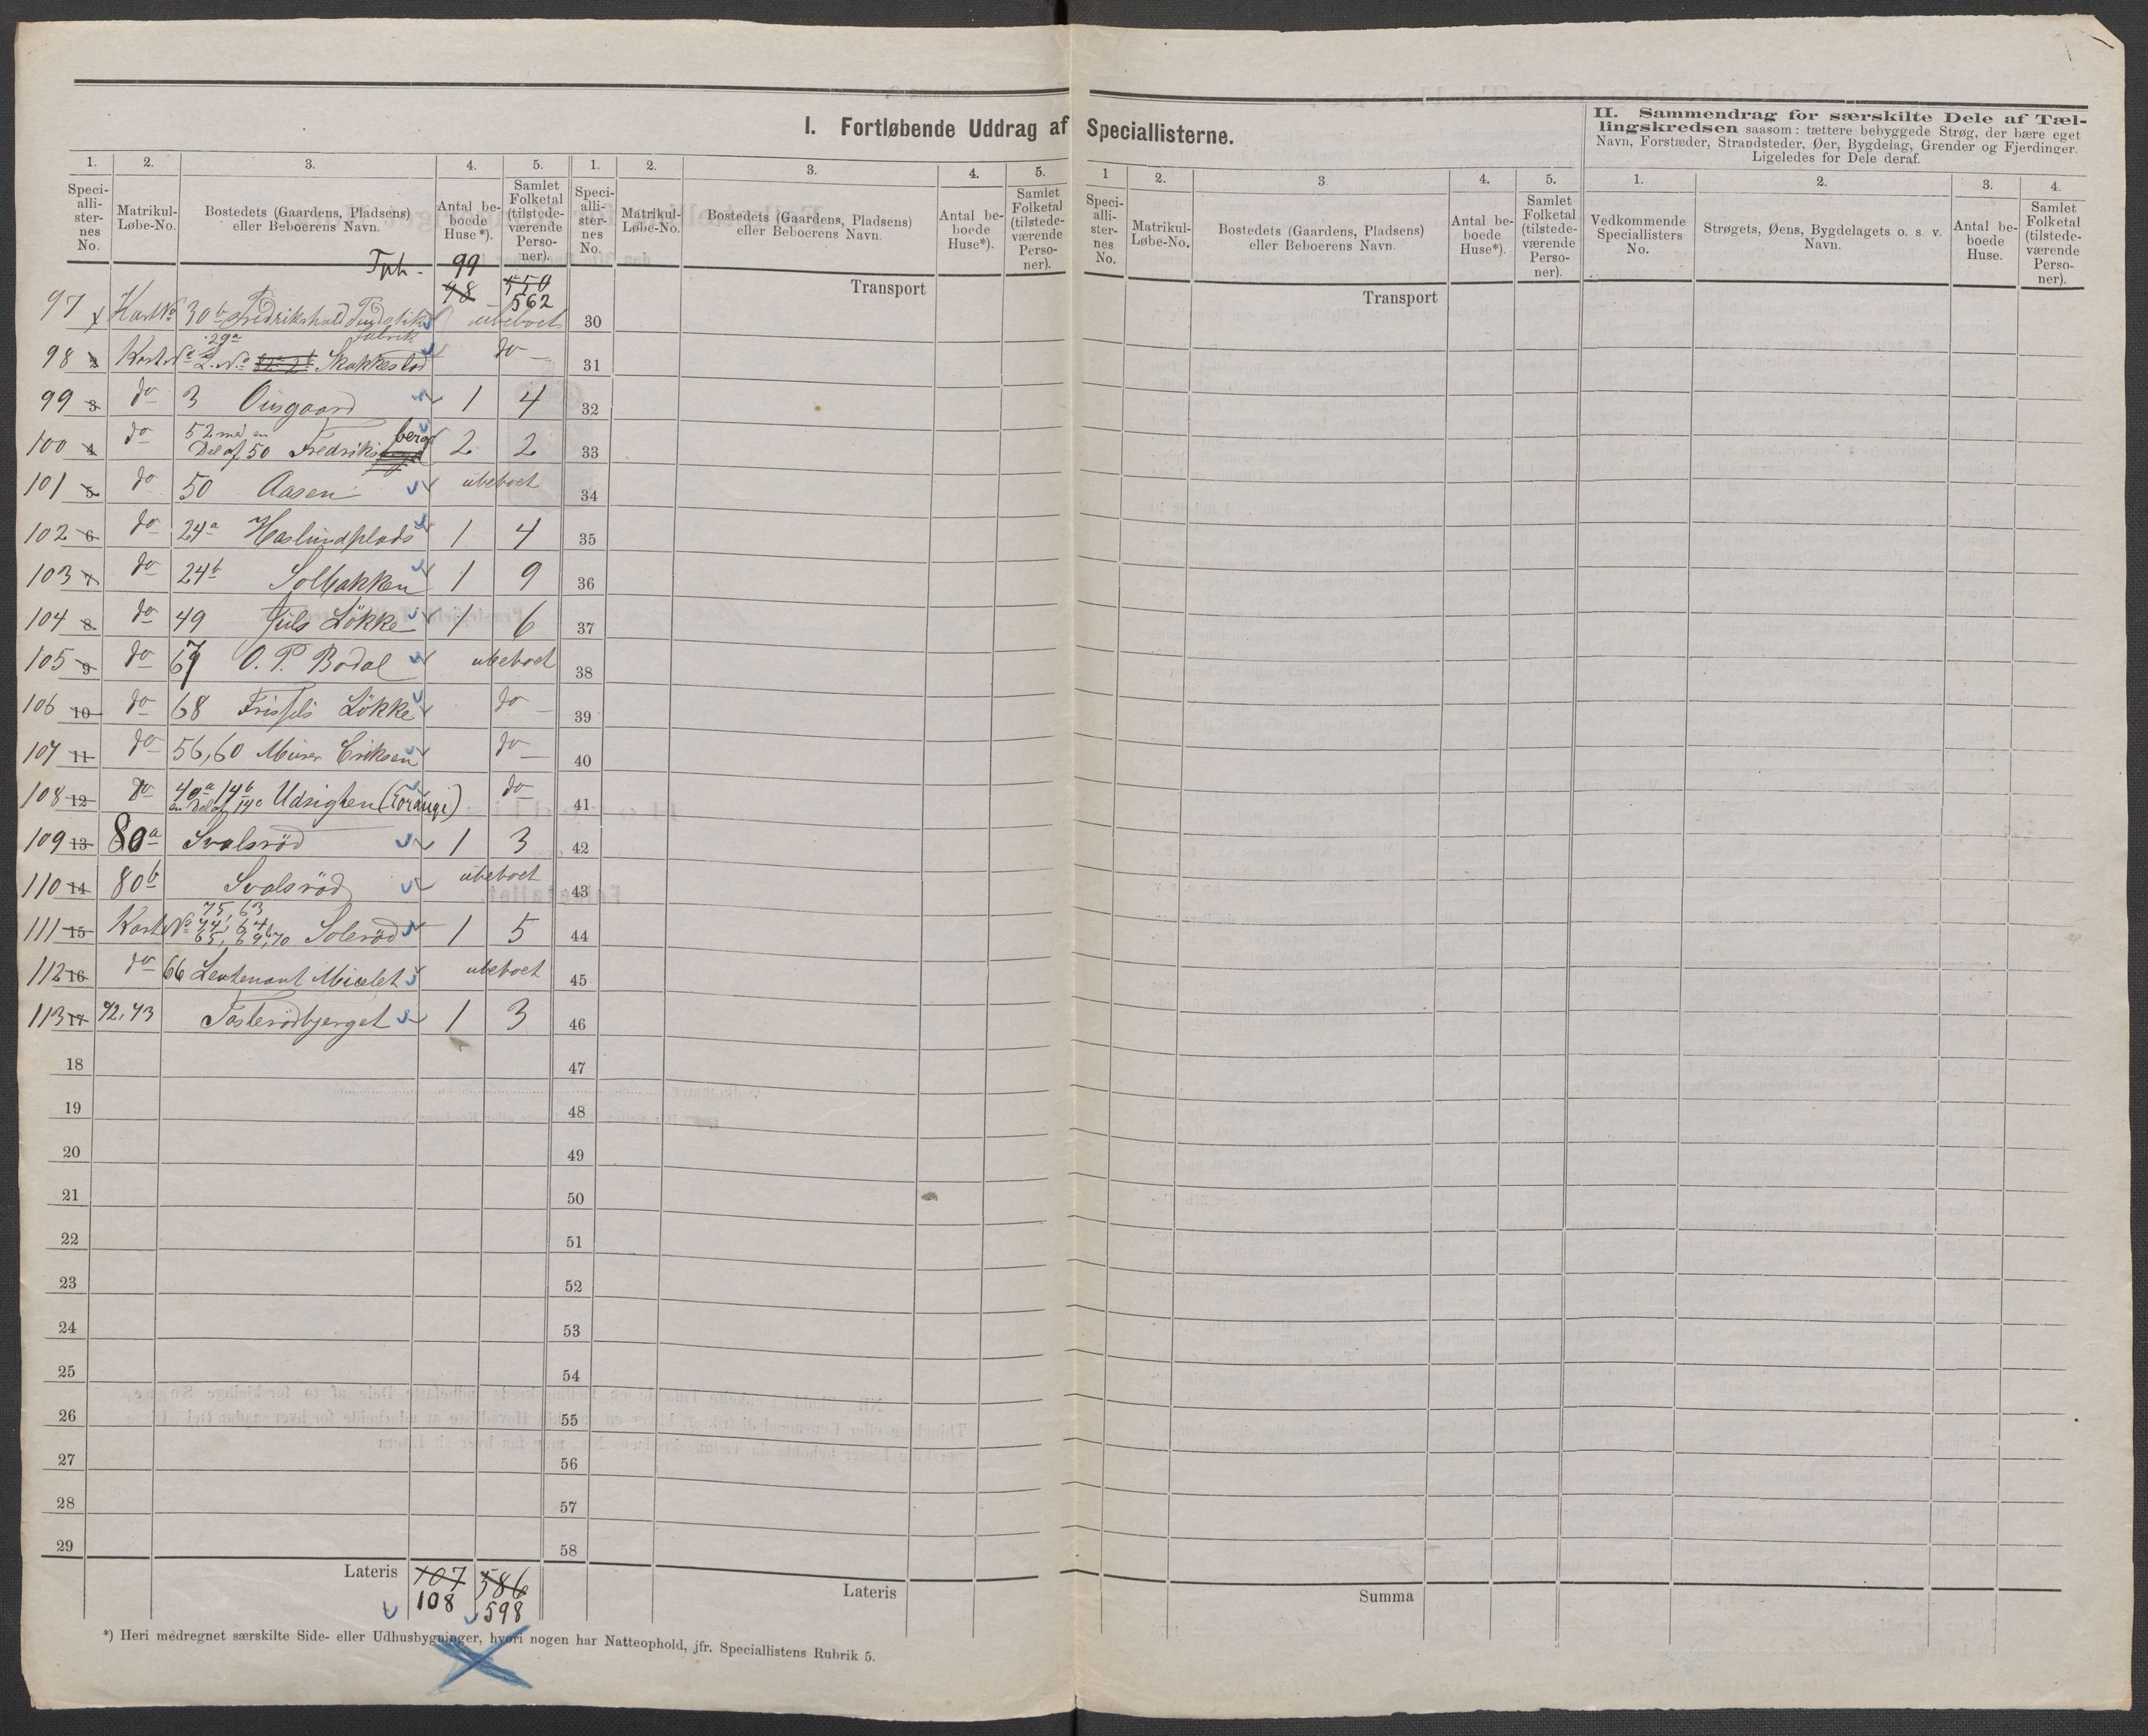 I. Fortløbende Uddrag af Speciallisterne.
II. Sammendrag for særskilte Dele af Tæl-
lingskredsen saasom: tættere bebyggede Strøg, der bære eget
Navn, Forstæder, Strandsteder, Øer, Bygdelag, Grender og Fjerdinger.
Ligeledes for Dele deraf.
1. 2. 3. 4. 5. 1. 2. 3. 4. 5. 1 2. 3. 4. 5. 1. 2. 3. 4.
Speci-
alli-
ster-
nes
No.
Matrikul-
Løbe-No.
Bostedets (Gaardens, Pladsens)
eller Beboerens Navn.
Antal be-
boede
Huse*).
Samlet
Folketal
(tilstede-
værende
Perso-
ner).
Speci-
alli-
ster-
nes
No.
Matrikul-
Løbe-No.
Bostedets (Gaardens, Pladsens)
eller Beboerens Navn.
Antal be-
boede
Huse*).
Samlet
Folketal
(tilstede-
værende
Perso-
ner).
Speci-
alli-
ster-
nes
No.
Matrikul-
Løbe-No.
Bostedets (Gaardens, Pladsens)
eller Beboerens Navn.
Antal be-
boede
Huse*).
Samlet
Folketal
(tilstede-
værende
Perso-
ner).
Vedkommende
Speciallisters
No.
Strøgets, Øens, Bygdelagets o. s. v.
Navn.
Antal be-
boede
Huse.
Samlet
Folketal
(tilstede-
værende
Perso-
ner).
Tph. 99
98 550
562
Transport
Transport
97 Kart No 30b Fredrikshald Fyrstik ubeboet 30
fabrik
29a
98 2 Kart No L. No Skakkestad do 31
99 3 do 3 Ousgaard 1 4 32
52 med en berg
100 4 do Del af 50 Fredriks 2 2 33
101 5 do 50 Aasen ubeboet 34
102 6 do 24a Haslundplads 1 4 35
103 7 do 24b Solbakken 1 9 36
104 8 do 49 Juls Løkke 1 6 37
105 9 do 67 O. P. Bodal ubeboet 38
106 10 do 68 Løkke do 39
107 11 do 56,60 Murer Eriksen do 40
108 12 do 40a 14b Udsigten do 41
en Del af 14a
109 13 80a Svalsrød 1 3 42
110 14 80b Svalsrød ubeboet 43
75, 63
111 15 Kart No 44, 64 Solerød 1 5 44
65, 69, 70
112 16 do 66 Leutenant Mielet ubeboet 45
113 17 42,43 Tosterødbjerget 1 3 46
18 47
19 48
20 49
21 50
22 51
23 52
24 53
25 54
26 55
27 56
28 57
29 58
Lateris 107 586
108 598
Lateris
Summa
*) Heri medregnet særskilte Side- eller Udhusbygninger, hvori nogen har Natteophold, jfr. Speciallistens Rubrik 5.